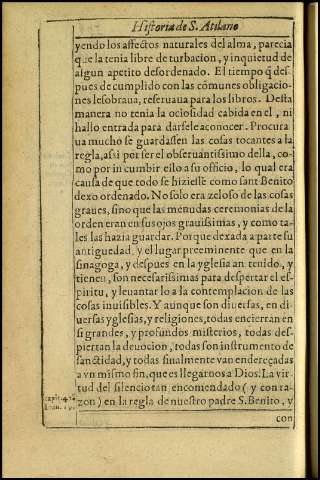 Historia de S. Atilano
yendo los affectos naturales del alma, parecia
que la tenia libre de turbacion, y inquietud de
algun apetito desordenado. El tiempo q̃ des-
pues de cumplido con las cõmunes obligacio-
nes le sobraua, reseruaua para los libros. Desta
manera no tenia la ociosidad cabida en el, ni
hallo entrada para darsele a conocer. Procura
ua mucho se guardassen las cosas tocantes a la
regla, assi por ser el obseruantissimo della, co-
mo por incumbir esto a su officio, lo qual era
causa de que todo se hiziesse como sant Benito
dexo ordenado. No solo era zeloso de las cosas
graues, sino que las menudas ceremonias de la
orden eran en sus ojos grauissimas, y como ta-
les las hazia guardar. Porque dexada a parte su
antiguedad, y el lugar preeminente que en la
sinagoga, y despues en la yglesia an tenido, y
tienen, son necesarissimas para despertar el es-
piritu, y leuantarlo a la contemplacion de las
cosas inuisibles. Y aunque son diuersas, en di-
uersas yglesias, y religiones, todas encierran en
si grandes, y profundos misterios, todas des-
piertan la deuocion, todas son instrumento de
sanctidad, y todas finalmente van endereçadas
a vn mismo fin, que es llegarnos a Dios. La vir-
tud del silencio tan encomendado (y con ra-
zon) en la regla de nuestro padre S. Benito, y
con